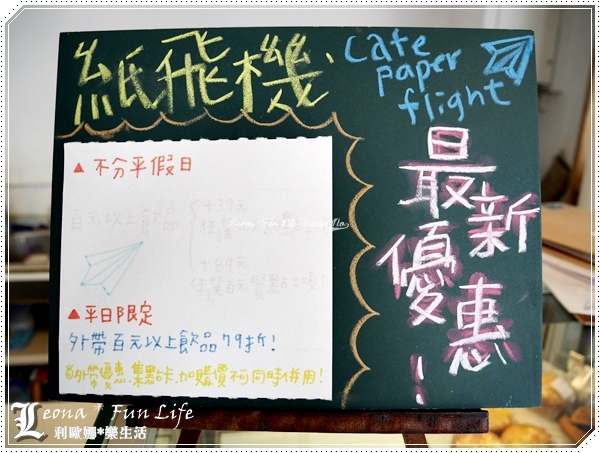 紙飛機、
Cafe
paper
flight
最新
優惠!
▲ 不分平假日
百元以上飲品
+39元
+89元
▲平日限定
外帶百元以上飲品79折!
外帶優惠、集點卡、加購價不可同時併用!
Leona * Fun Life
利歐娜*樂生活